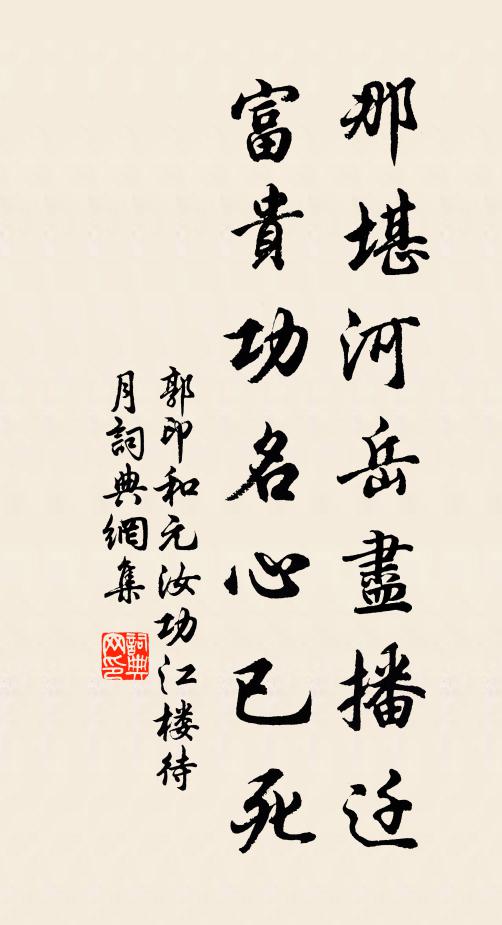 那堪河岳盡播迁
富貴功名心已死
郭印和元汝功江楼待
月詞典網集
詞典网印